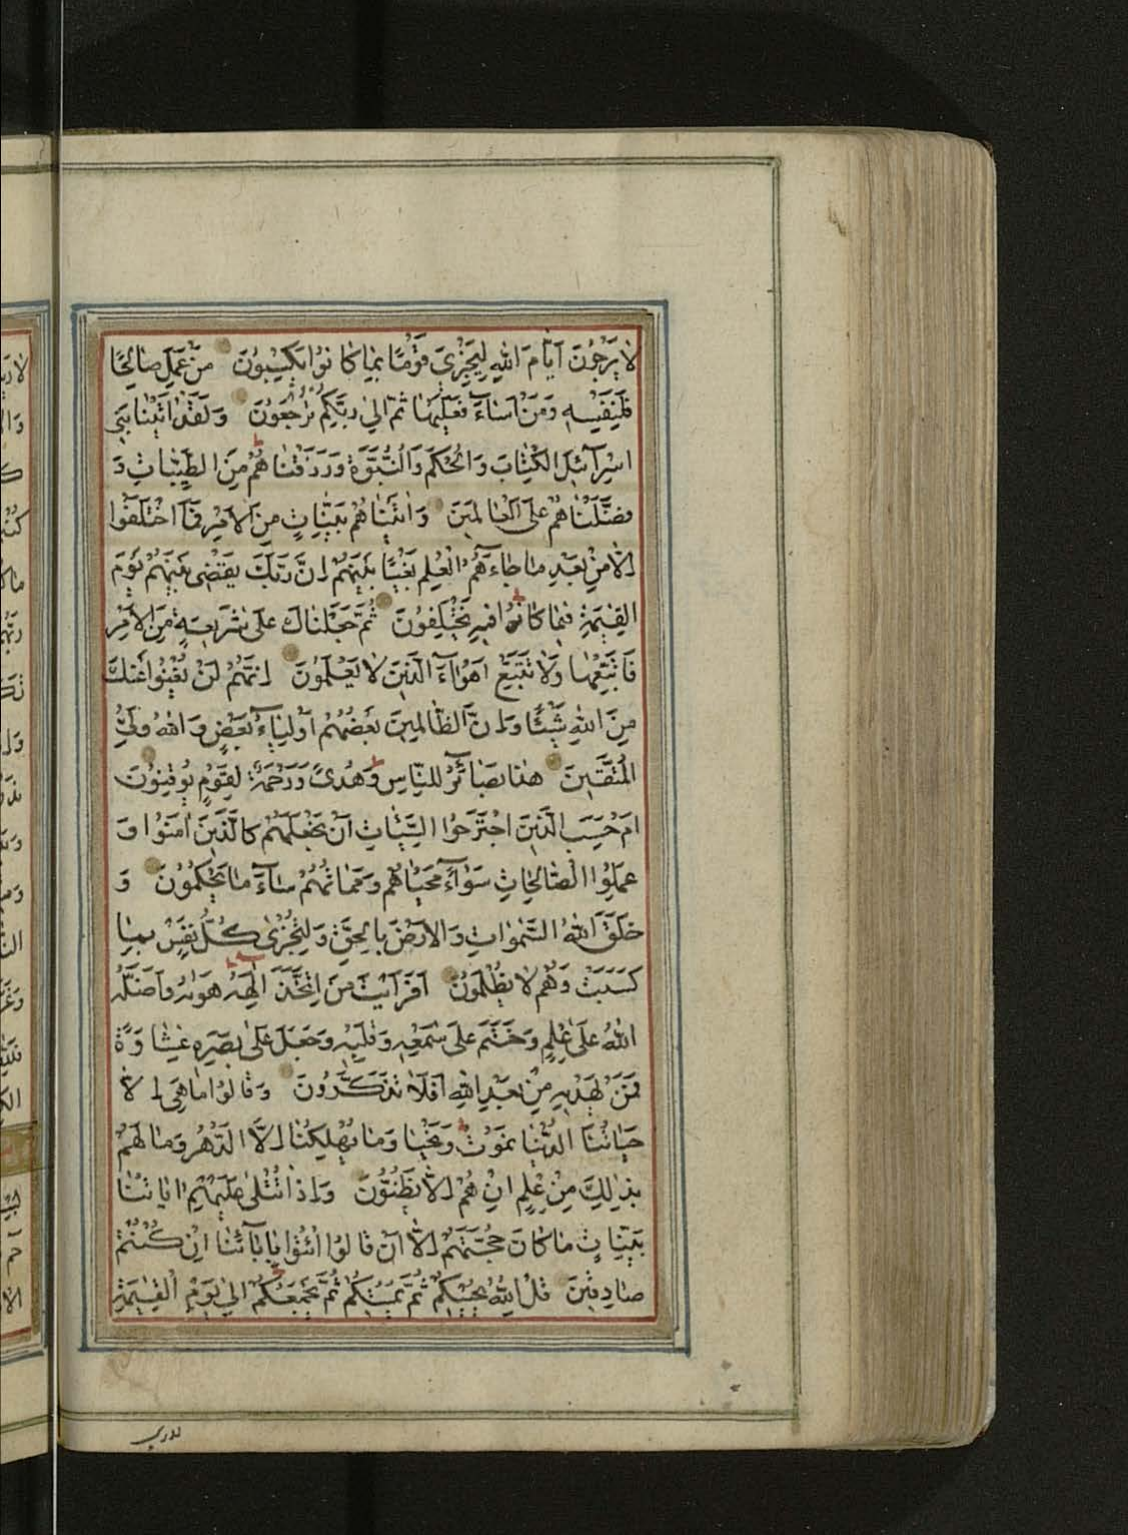 لا يَرْجُونَ اَيَّامَ اللهِ لِيَجْزِيَ قَوْمًا بِمَا كَانُوا يَكْسِبُونَ مَنْ عَمِلَ صَالِحًا
فَلِنَفْسِهِ وَمَنْ اَسَاءَ فَعَلَيْهَا ثُمَّ اِلىٰ رَبِّكُمْ تُرْجَعُونَ وَلَقَدْ اٰتَيْنَا بَنِي
اِسْرَآئِيلَ الْكِتَابَ وَالْحُكْمَ وَالنُّبُوَّةَ وَرَزَقْنَاهُمْ مِنَ الطَّيِّبَاتِ وَ
فَضَّلْنَاهُمْ عَلَى الْعَالَمِينَ وَاٰتَيْنَاهُمْ بَيِّنَاتٍ مِنَ الْاَمْرِ فَمَا اخْتَلَفُوا
اِلَّا مِنْ بَعْدِ مَا جَاءَهُمُ الْعِلْمُ بَغْيًا بَيْنَهُمْ اِنَّ رَبَّكَ يَقْضِي بَيْنَهُمْ يَوْمَ
الْقِيٰمَةِ فِيمَا كَانُوا فِيهِ يَخْتَلِفُونَ ثُمَّ جَعَلْنَاكَ عَلىٰ شَرِيعَةٍ مِنَ الْاَمْرِ
فَاتَّبِعْهَا وَلَا تَتَّبِعْ اَهْوَآءَ الَّذِينَ لَا يَعْلَمُونَ اِنَّهُمْ لَنْ يُغْنُوا عَنْكَ
مِنَ اللهِ شَيْئًا وَاِنَّ الظَّالِمِينَ بَعْضُهُمْ اَوْلِيَاءُ بَعْضٍ وَاللهُ وَلِيُّ
الْمُتَّقِينَ هٰذَا بَصَائِرُ لِلنَّاسِ وَهُدًى وَرَحْمَةٌ لِقَوْمٍ يُوقِنُونَ
اَمْ حَسِبَ الَّذِينَ اجْتَرَحُوا السَّيِّئَاتِ اَنْ نَجْعَلَهُمْ كَالَّذِينَ اٰمَنُوا وَ
عَمِلُوا الصَّالِحَاتِ سَوَآءً مَحْيَاهُمْ وَمَمَاتُهُمْ سَآءَ مَا يَحْكُمُونَ وَ
خَلَقَ اللهُ السَّمٰوَاتِ وَالْاَرْضَ بِالْحَقِّ وَلِتُجْزٰى كُلُّ نَفْسٍ بِمَا
كَسَبَتْ وَهُمْ لَا يُظْلَمُونَ اَفَرَاَيْتَ مَنِ اتَّخَذَ اِلٰهَهُ هَوٰيهُ وَاَضَلَّهُ
اللهُ عَلىٰ عِلْمٍ وَخَتَمَ عَلىٰ سَمْعِهِ وَقَلْبِهِ وَجَعَلَ عَلىٰ بَصَرِهِ غِشَاوَةً
فَمَنْ يَهْدِيهِ مِنْ بَعْدِ اللهِ اَفَلَا تَذَكَّرُونَ وَقَالُوا مَا هِيَ اِلَّا
حَيَاتُنَا الدُّنْيَا نَمُوتُ وَنَحْيَا وَمَا يُهْلِكُنَا اِلَّا الدَّهْرُ وَمَا لَهُمْ
بِذٰلِكَ مِنْ عِلْمٍ اِنْ هُمْ اِلَّا يَظُنُّونَ وَاِذَا تُتْلىٰ عَلَيْهِمْ اٰيَاتُنَا
بَيِّنَاتٍ مَا كَانَ حُجَّتَهُمْ اِلَّا اَنْ قَالُوا ائْتُوا بِاٰبَآئِنَا اِنْ كُنْتُمْ
صَادِقِينَ قُلِ اللهُ يُحْيِيكُمْ ثُمَّ يُمِيتُكُمْ ثُمَّ يَجْمَعُكُمْ اِلىٰ يَوْمِ الْقِيٰمَةِ